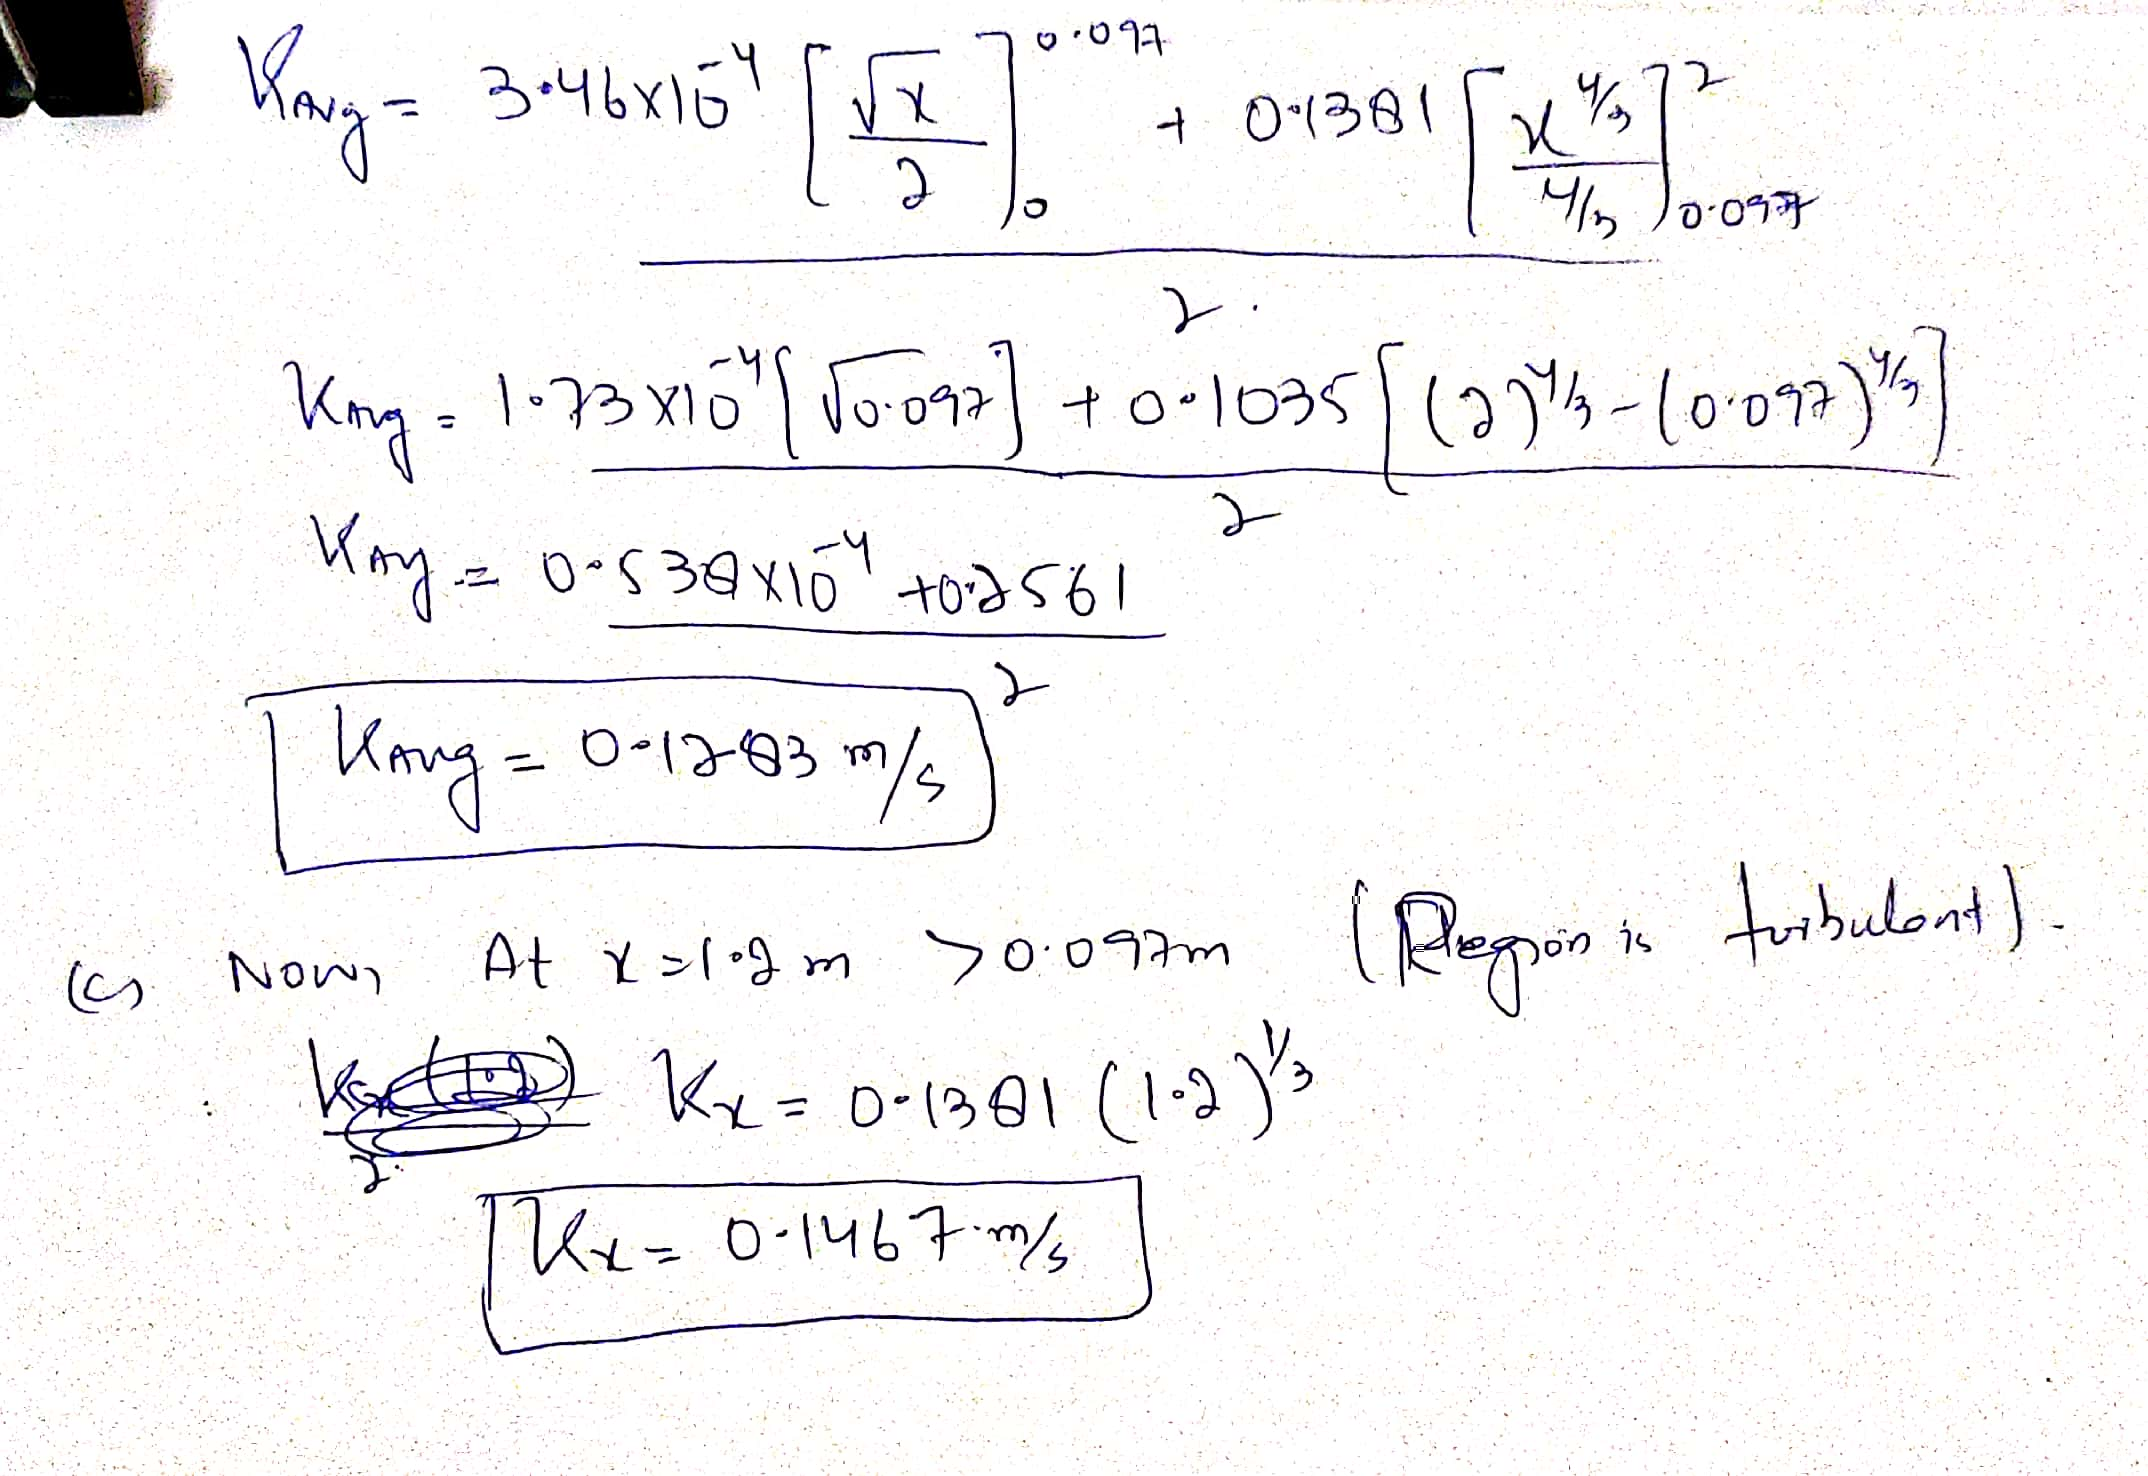 KAvg = 3.46x10^-4 [√x/2]_0^0.097 + 0.1381 [x^4/3 / 4/3]_0.097^2
2.
KAvg = 1.73x10^-4 [√0.097] + 0.1035 [(2)^4/3 - (0.097)^4/3]
2
KAvg = 0.538x10^-4 + 0.2561
2
KAvg = 0.1283 m/s
(c) Now, At x = 1.2 m > 0.097m (Region is turbulent).
Kx = 0.1381 (1.2)^1/3
2.
Kx = 0.1467 m/s